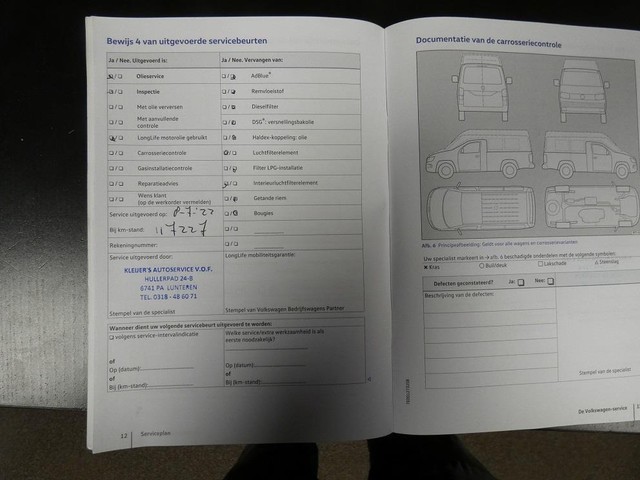 Bewijs 4 van uitgevoerde servicebeurten
Ja / Nee. Uitgevoerd is:
Olieservice
Inspectie
Met olie verversen
Met aanvullende
controle
LongLife motorolie gebruikt
Carrosseriecontrole
Geeinstallatiecontrole
Reparatieadvies
Wens klant
(op de werkorder vermelden)
Service uitgevoerd op: 8-7-22
Bij km-stand: 117227
Rekeningnummer:
Service uitgevoerd door:
KLEUER'S AUTOSERVICE V.O.F.
HULLERPAD 24-B
6741 PA LUNTEREN
TEL. 0318 - 48 60 71
Stempel van de specialist
Ja / Nee. Vervangen van:
AdBlue®
Remvloeistof
Dieselfilter
DSG®- versnellingsbakolie
Haldex-koppeling: olie
Luchtfilterelement
Filter LPG-installatie
Interieurluchtfilterelement
Getande riem
Bougies
LongLife mobiliteitsgarantie:
Stempel van Volkswagen Bedrijfswagens Partner
Wanneer dient uw volgende servicebeurt uitgevoerd te worden:
volgens service-intervalindicatie
of
Op (datum):
of
Bij (km-stand):
Welke service/extra werkzaamheid is als
eerste noodzakelijk?
Op (datum):
of
Bij (km-stand):
12 Serviceplan
Documentatie van de carrosseriecontrole
Afb. 6 Principeafbeelding: Geldt voor alle wagens en carrosserievarianten
Uw specialist markeert in afb. 6 beschadigde onderdelen met de volgende symbolen:
Kras Buil/deuk Lakschade Steenslag
Defecten geconstateerd? Ja: Nee:
Beschrijving van de defecten:
Stempel van de specialist
De Volkswagen-service